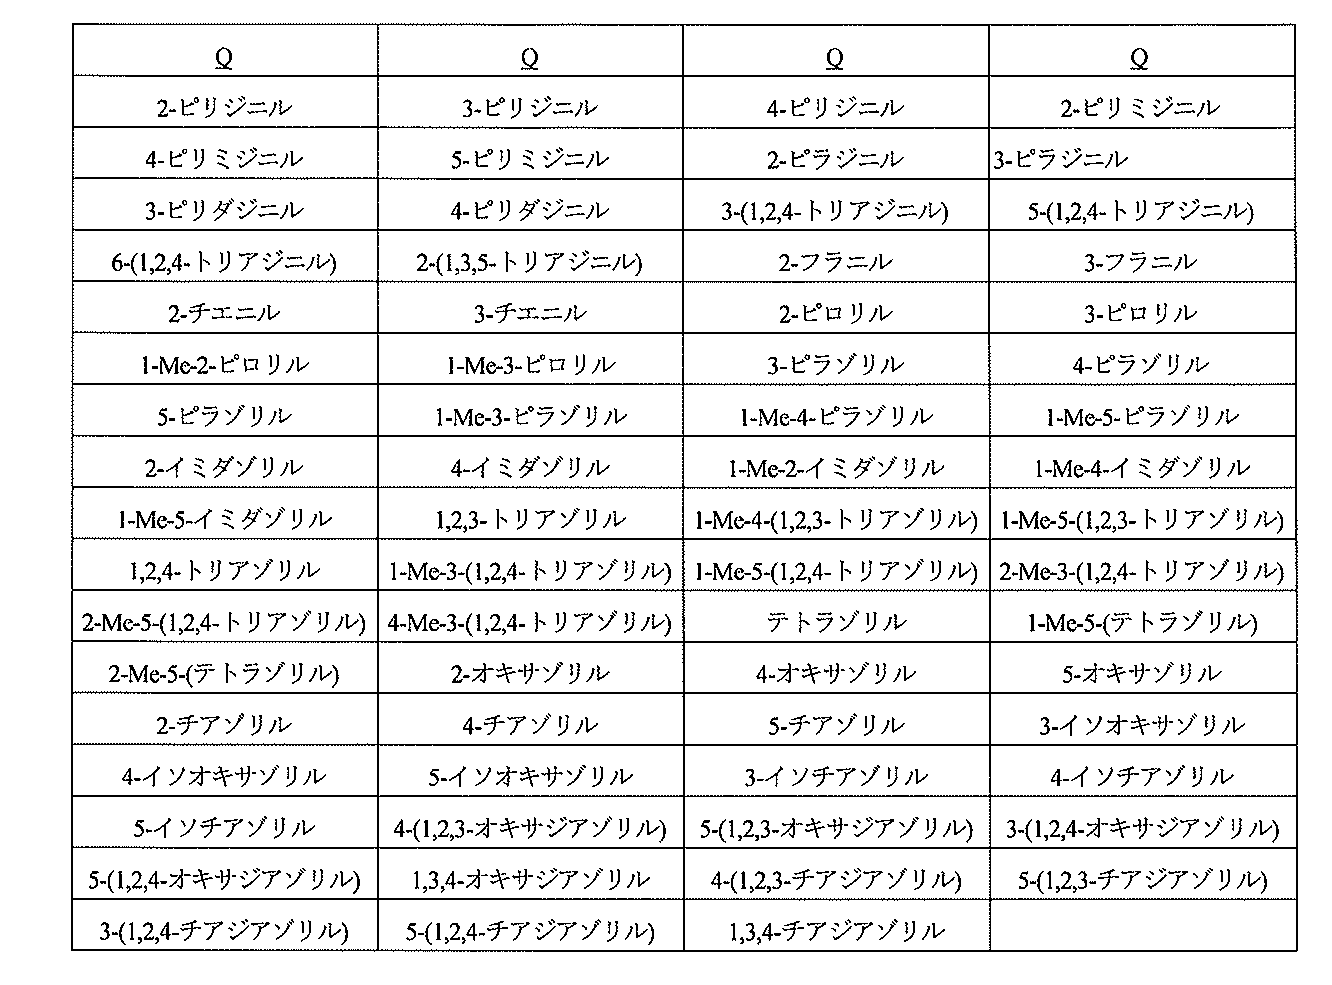 Q Q Q Q
2-ピリジニル 3-ピリジニル 4-ピリジニル 2-ピリミジニル
4-ピリミジニル 5-ピリミジニル 2-ピラジニル 3-ピラジニル
3-ピリダジニル 4-ピリダジニル 3-(1,2,4-トリアジニル) 5-(1,2,4-トリアジニル)
6-(1,2,4-トリアジニル) 2-(1,3,5-トリアジニル) 2-フラニル 3-フラニル
2-チエニル 3-チエニル 2-ピロリル 3-ピロリル
1-Me-2-ピロリル 1-Me-3-ピロリル 3-ピラゾリル 4-ピラゾリル
5-ピラゾリル 1-Me-3-ピラゾリル 1-Me-4-ピラゾリル 1-Me-5-ピラゾリル
2-イミダゾリル 4-イミダゾリル 1-Me-2-イミダゾリル 1-Me-4-イミダゾリル
1-Me-5-イミダゾリル 1,2,3-トリアゾリル 1-Me-4-(1,2,3-トリアゾリル) 1-Me-5-(1,2,3-トリアゾリル)
1,2,4-トリアゾリル 1-Me-3-(1,2,4-トリアゾリル) 1-Me-5-(1,2,4-トリアゾリル) 2-Me-3-(1,2,4-トリアゾリル)
2-Me-5-(1,2,4-トリアゾリル) 4-Me-3-(1,2,4-トリアゾリル) テトラゾリル 1-Me-5-(テトラゾリル)
2-Me-5-(テトラゾリル) 2-オキサゾリル 4-オキサゾリル 5-オキサゾリル
2-チアゾリル 4-チアゾリル 5-チアゾリル 3-イソオキサゾリル
4-イソオキサゾリル 5-イソオキサゾリル 3-イソチアゾリル 4-イソチアゾリル
5-イソチアゾリル 4-(1,2,3-オキサジアゾリル) 5-(1,2,3-オキサジアゾリル) 3-(1,2,4-オキサジアゾリル)
5-(1,2,4-オキサジアゾリル) 1,3,4-オキサジアゾリル 4-(1,2,3-チアジアゾリル) 5-(1,2,3-チアジアゾリル)
3-(1,2,4-チアジアゾリル) 5-(1,2,4-チアジアゾリル) 1,3,4-チアジアゾリル